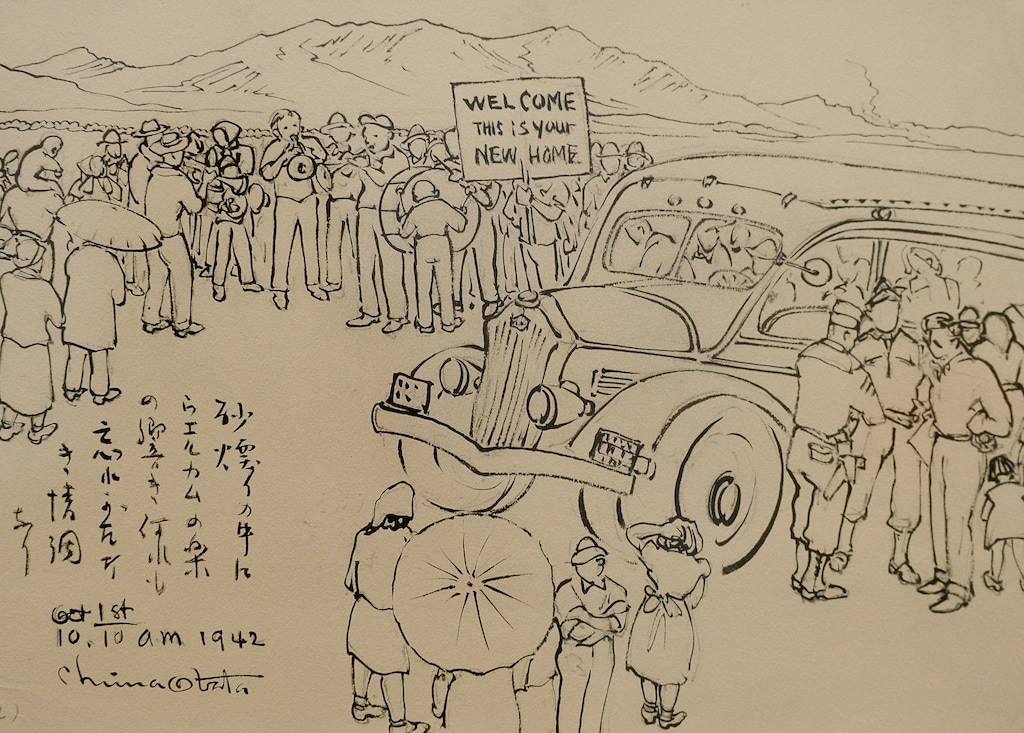 WELCOME
THIS is your
NEW HOME
砂煙りの中に
らエルカムの楽
の響き何れも
忘れ
き情調
なり
Oct 1st
10.10 am 1942
Chiura Obata